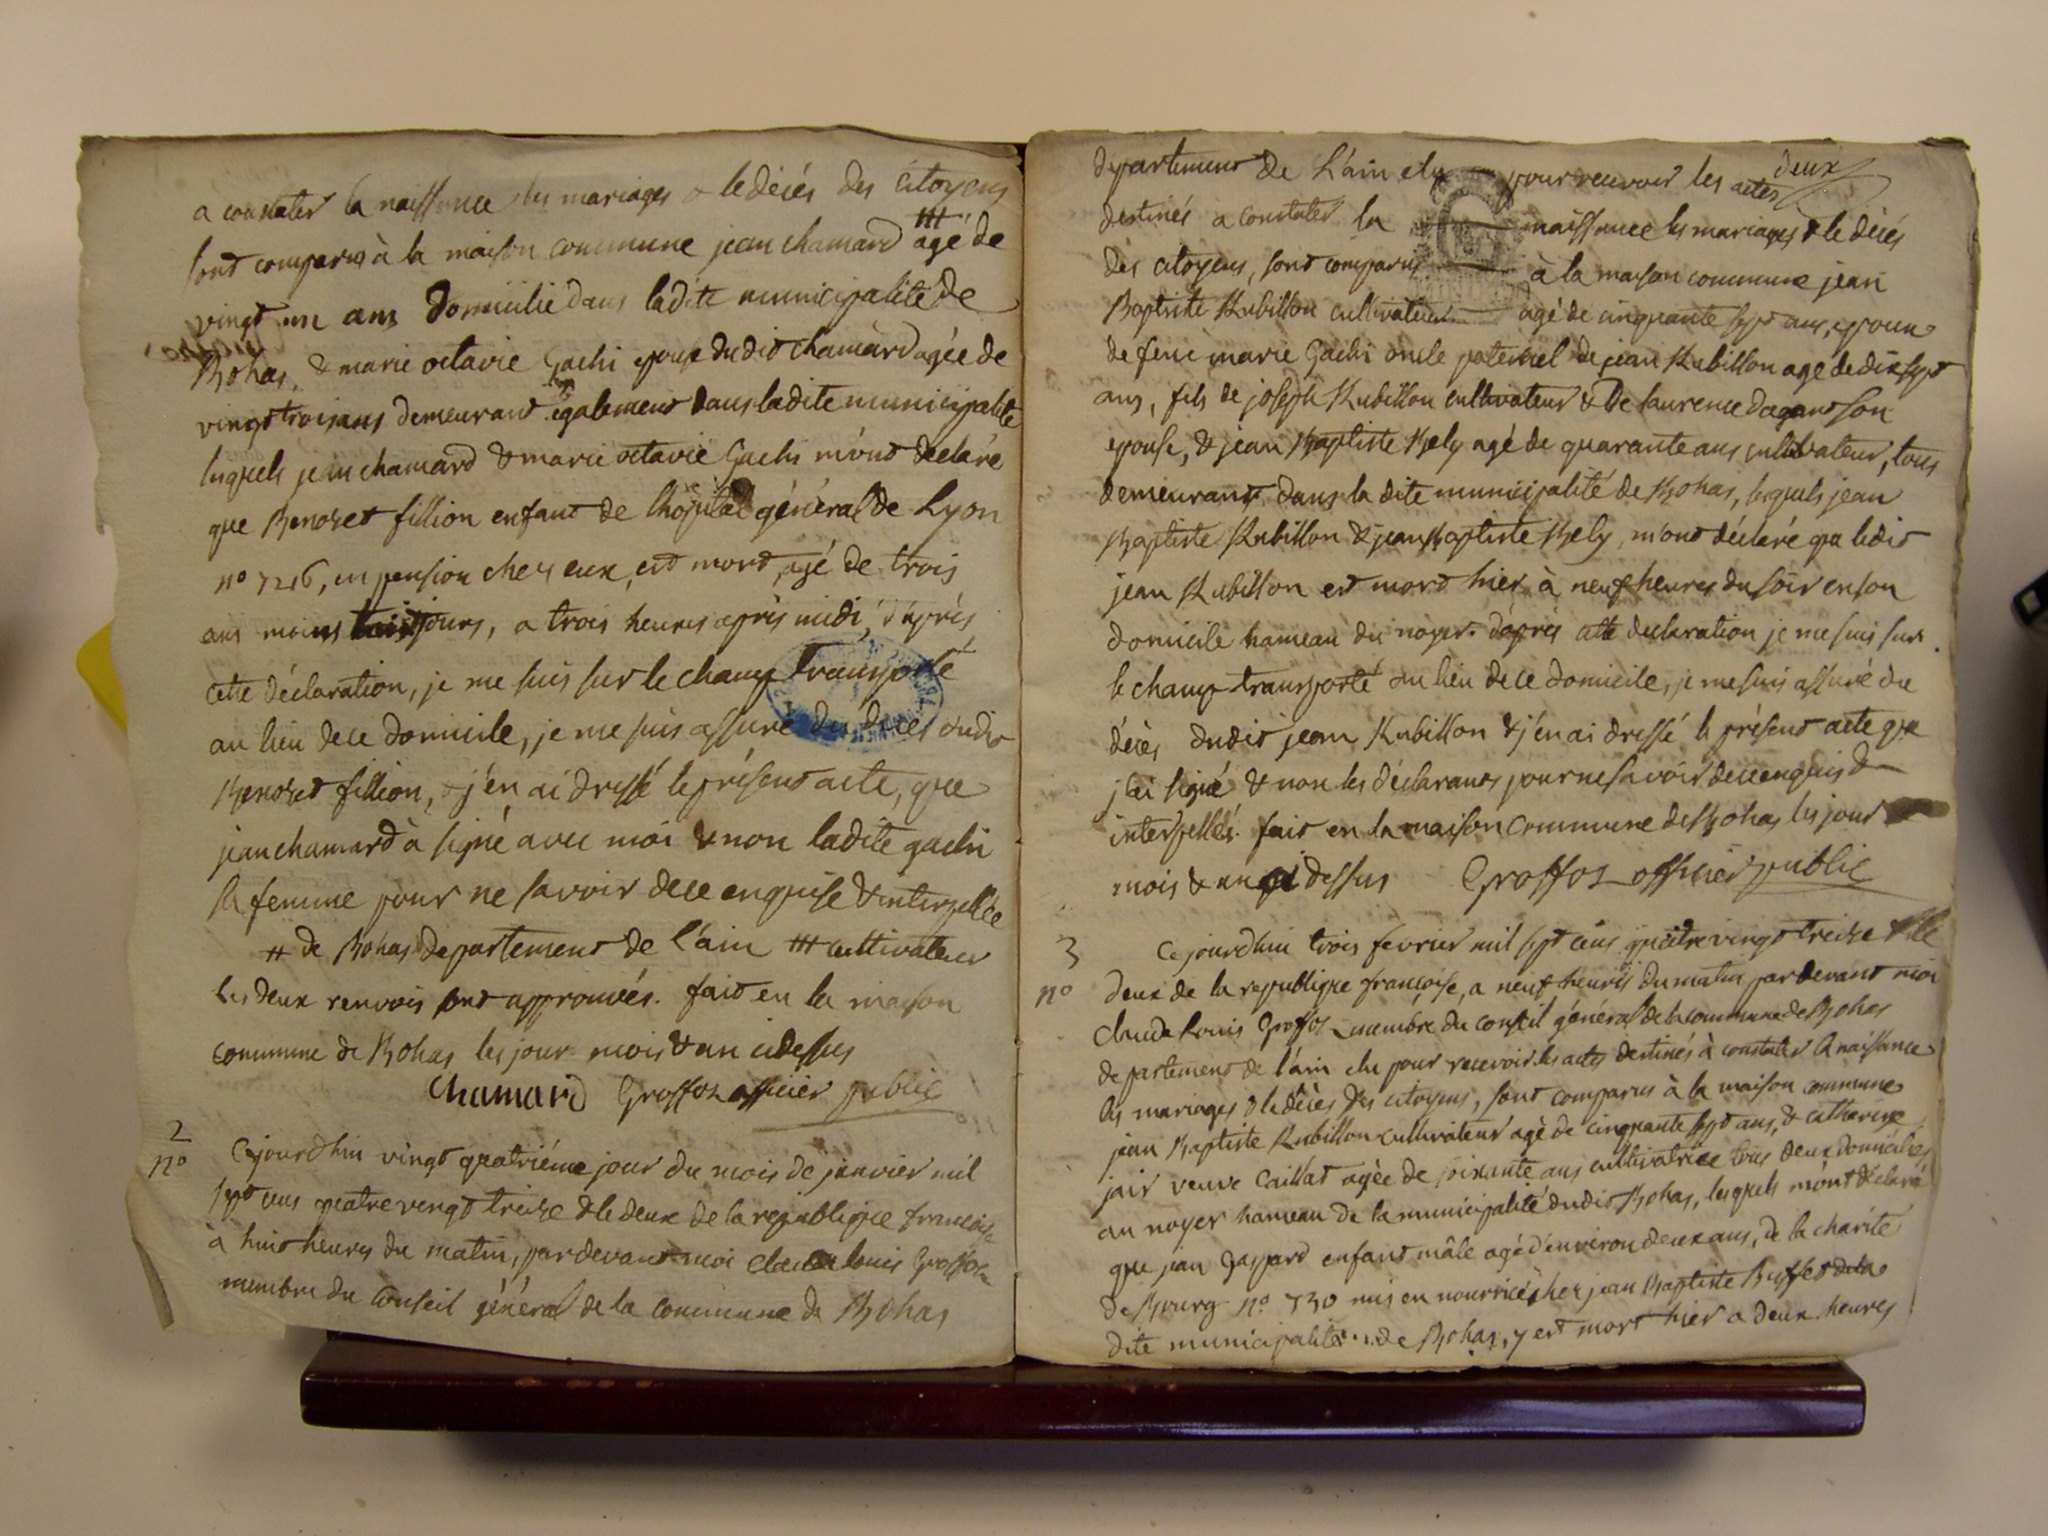 a constater la naissance les mariages & le décés des citoyens
sont comparus à la maison commune jean chamard ⧻ agé de
vingt un ans domicilié dans ladite municipalité de
Bohas, & marie octavie Gachi epouse dudit chamard agée de
vingt trois ans demeurant également dans ladite municipalité
lesquels jean chamard & marie octavie Gachi m'ont declaré
que Benoset fillion enfant de l'hôpital général de Lyon
n.o 7216, en pension chez eux, est mort, agé de trois
ans moins jours, a trois heures après midi, d'après
cette déclaration, je me suis sur le champ transporté
au lieu de ce domicile, je me suis assuré du decés dudit
Benoset fillion, & j'en ai dressé le présent acte, que
jean chamard à signé avec moi & non ladite gachi
sa femme pour ne savoir de ce enquise & interpellée
# de Bohas departement de l'ain ⧻ cultivateur
les deux renvois sont approuvés. fait en la maison
commune de Bohas les jour mois & an ci dessus
Chamard Groffoz officier public
2
n.o Cejourdhui vingt quatriéme jour du mois de janvier mil
sept cens quatre vingt treize & le deux de la republique francoise
à huit heures du matin, par devant moi claude louis Groffoz
membre du conseil général de la commune de Bohas
deux
departement de L'ain elu pour recevoir les actes
destinés a constater la naissance les mariages & le décés
des citoyens, sont comparus à la maison commune jean
Baptiste Rubillon cultivateur agé de cinquante sept ans, epoux
de feue marie Gachi oncle paternel de jean Rubillon agé de dix sept
ans, fils de joseph Rubillon cultivateur & de laurence dagand son
epouse, & jean Baptiste Bely agé de quarante ans cultivateur, tous
demeurant dans la dite municipalité de Bohas, lesquels jean
Baptiste Rubillon & jean Baptiste Bely, m'ont déclaré que ledit
jean Rubillon est mort hier à neuf heures du soir en son
domicile hameau du noyer. d'après cette declaration je me suis sur
le champ transporté au lieu de ce domicile, je me suis assuré du
décès dudit jean Rubillon & j'en ai dressé le présent acte que
j'ai signé & non les déclarants pour ne savoir de ce enquis &
interpellés. fait en la maison commune de Bohas les jour
mois & an ci dessus Groffoz officier public
3
n.o Cejourdhui trois fevrier mil sept cens quatre vingt treize & le
deux de la republique françoise, a neuf heures du matin par devant moi
claude Louis Groffoz membre du conseil général de la commune de Bohas
departement de l'ain elu pour recevoir les actes destinés à constater la naissance
les mariages & le décès des citoyens, sont comparus à la maison commune
jean Baptiste Rubillon cultivateur agé de cinquante sept ans, & catherine
jair veuve Caillat agée de soixante ans cultivatrice tous deux domiciliés
au noyer hameau de la municipalité dudit Bohas, lesquels m'ont déclaré
que jean Gaspard enfant mâle agé d'environ deux ans, de la charité
de Bourg n.o 730 mis en nourrice chez jean Baptiste Buffet de la
dite municipalité de Bohas, y est mort hier a deux heures